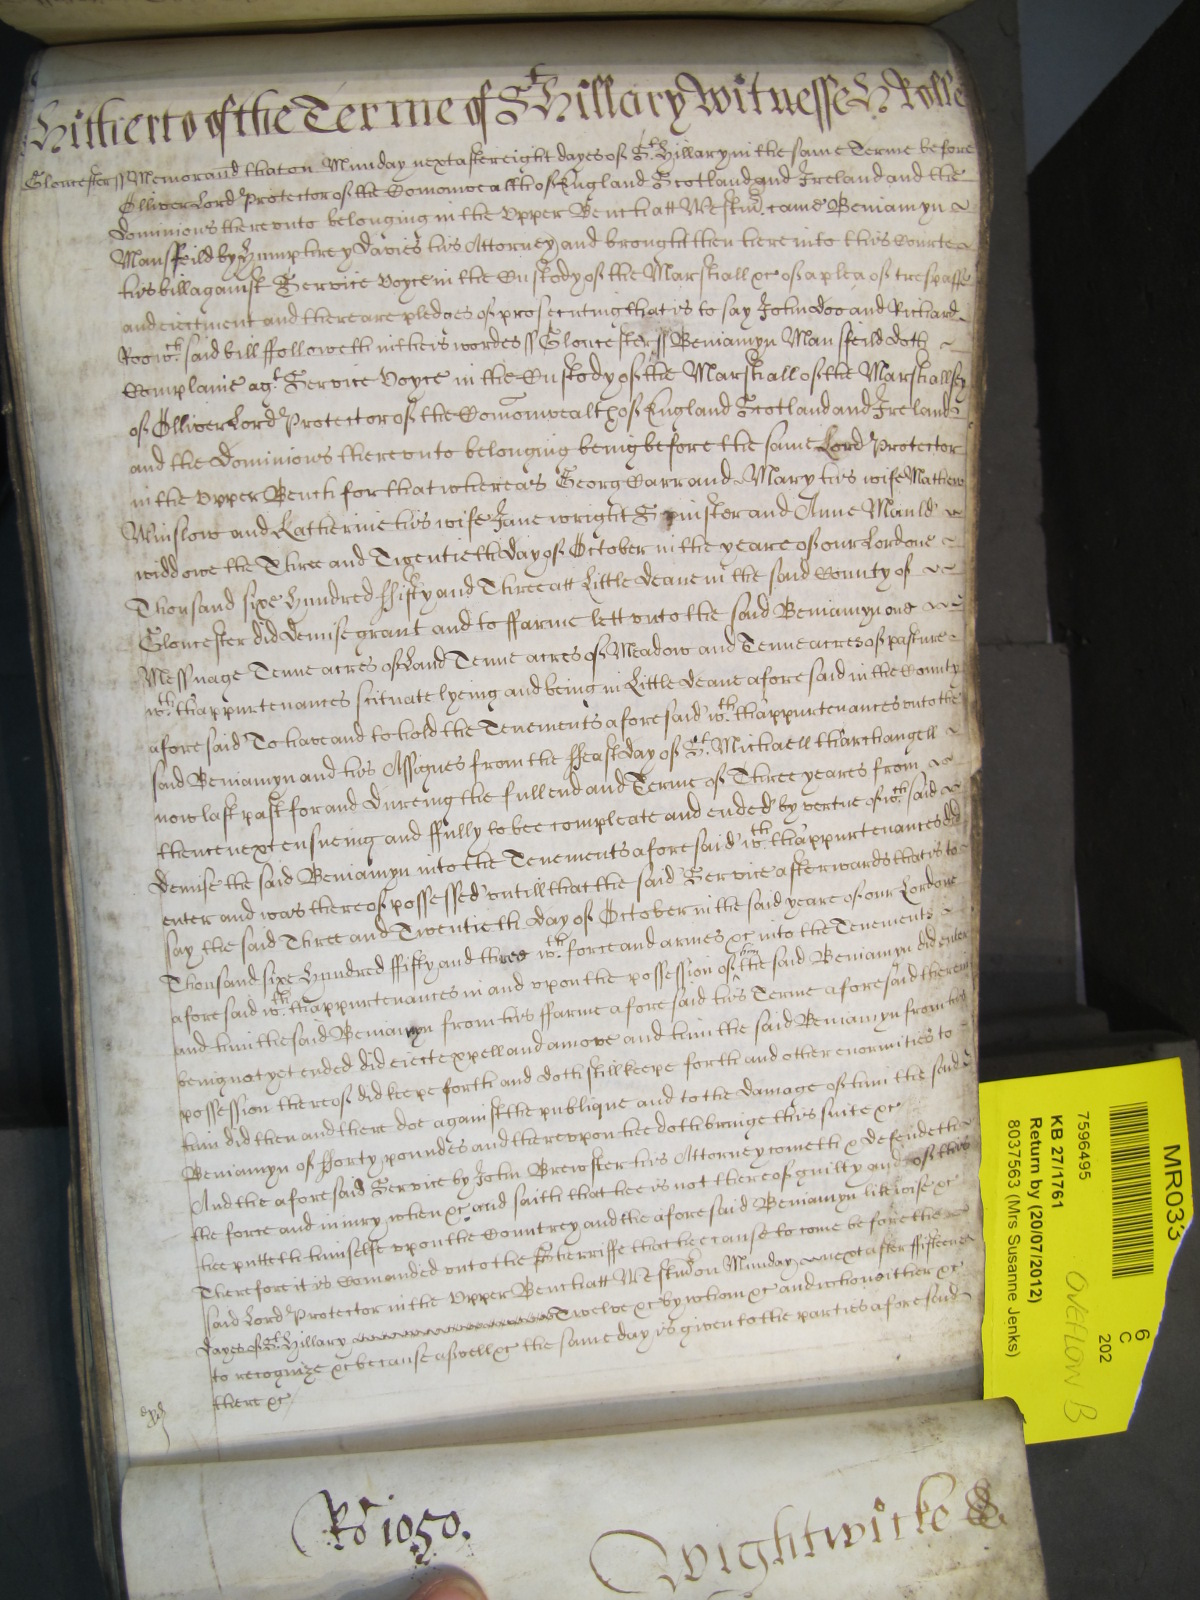 Hitherto of the Terme of St Hillary Witnesse H Rolle
Gloucester ss Memorand that on Munday next after eight dayes of St. Hillary in the same Terme before
Olliver Lord Protector of the Comonwealth of England Scotland and Ireland and the
dominions thereunto belonging in the Upper Bench att Westmr. came Beniamyn
Mansfeild by Humphrey Davies his Attorney and brought then here into this Courte
his bill against Gervice Voyce in the Custody of the Marshall &c of a plea of trespasse
and eiectment and there are pledges of prosecuting that is to say John Doo and Richard
Roo wch. said bill ffolloweth in theis wordes ss Gloucester ss Beniamyn Mansfeild doth
Complaine agt. Gervice Voyce in the Custody of the Marshall of the Marshallsey
of Olliver Lord Protector of the Comonwealth of England Scotland and Ireland
and the Dominions thereunto belonging being before the same Lord Protector
in the Upper Bench for that whereas Georg Carr and Mary his wife Mathew
Winslow and Katherine his wife Jane wright Spinster and Anne Mauld
widdowe the Three and Twentieth day of October in the yeare of our Lord one
Thousand sixe hundred ffifty and Three att Little Deane in the said County of
Gloucester did Demise grant and to ffarme lett unto the said Beniamyn one
Messuage Tenne acres of Land Tenne acres of Meadow and Tenne acres of pasture
wth. thappurtenances scituate lyeing and being in Little Deane aforesaid in the County
aforesaid To have and to hold the Tenements aforesaid wth. thappurtenances unto the
said Beniamyn and his Assignes from the ffeast day of St. Michaell tharchangell
now last past for and Dureing the full end and Terme of Three yeares from
thence next ensueing and ffully to bee compleate and ended by vertue of wch. said
Demise the said Beniamyn into the Tenements aforesaid wth. thappurtenances did
enter and was thereof possessed untill that the said Gervice afterwards that is to
say the said Three and Twentieth Day of October in the said yeare of our Lord one
Thousand sixe hundred ffifty and three wth. force and armes &c into the Tenements
aforesaid wth. thappurtenances in and upon the possession of him the said Beniamyn did enter
and him the said Beniamyn from his ffarme aforesaid his Terme aforesaid therein
being not yet ended did eiecte expell and amove and him the said Beniamyn from his
possession thereof did keepe forth and doth still keepe forth and other enormities to
him did then and there doe against the publique and to the damage of him the said
Beniamyn of fforty poundes and thereupon hee doth bringe this suite &c
And the aforesaid Gervice by John Brewster his Attorney cometh & defendeth
the force and iniury when &c and saith that hee is not thereof guilty and of this
hee putteth himselfe upon the Countrey and the aforesaid Beniamyn likewise &c
Therefore it is Comanded unto the Sherriffe that hee cause to come before the
said Lord Protector in the Upper Bench att Westmr on Munday next after ffifteene
dayes of St. Hillary Twelve &c by whom &c and who neither &c
to recognize &c because aswell &c the same day is given to the parties aforesaid
there &c
Ro 1050.
Wightwicke
MR033
6
C
202
7596495
KB 27/1761
Return by (20/07/2012)
8037563 (Mrs Susanne Jenks)
OVEFLOW B